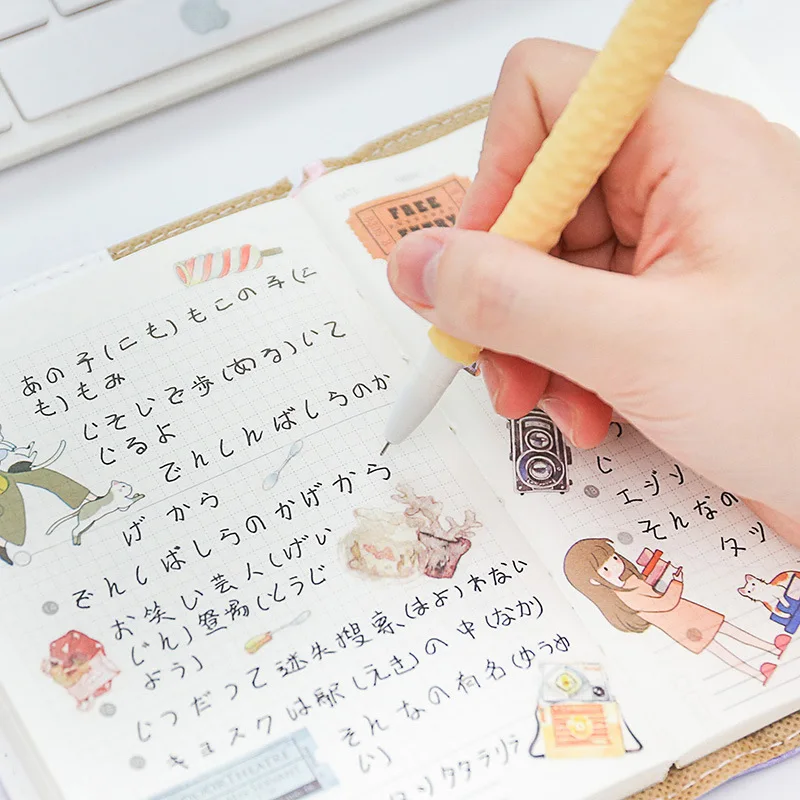 FREE
ENTRY
あの子(にも)もこの子(に
も)もみ
じそいそ歩(ある)いて
じるよ
でんしんばしらのか
げから
でんしばしらのかげから
お笑い芸人(げい
じん)登場(とうじ
よう)
じつだつて迷失捜索(まよ)わない
キョスクは駅(えき)の中(なか)
そんなの有名(ゆうめ
い)
タリラリラ
じ
エジソ
そんなの
タツ